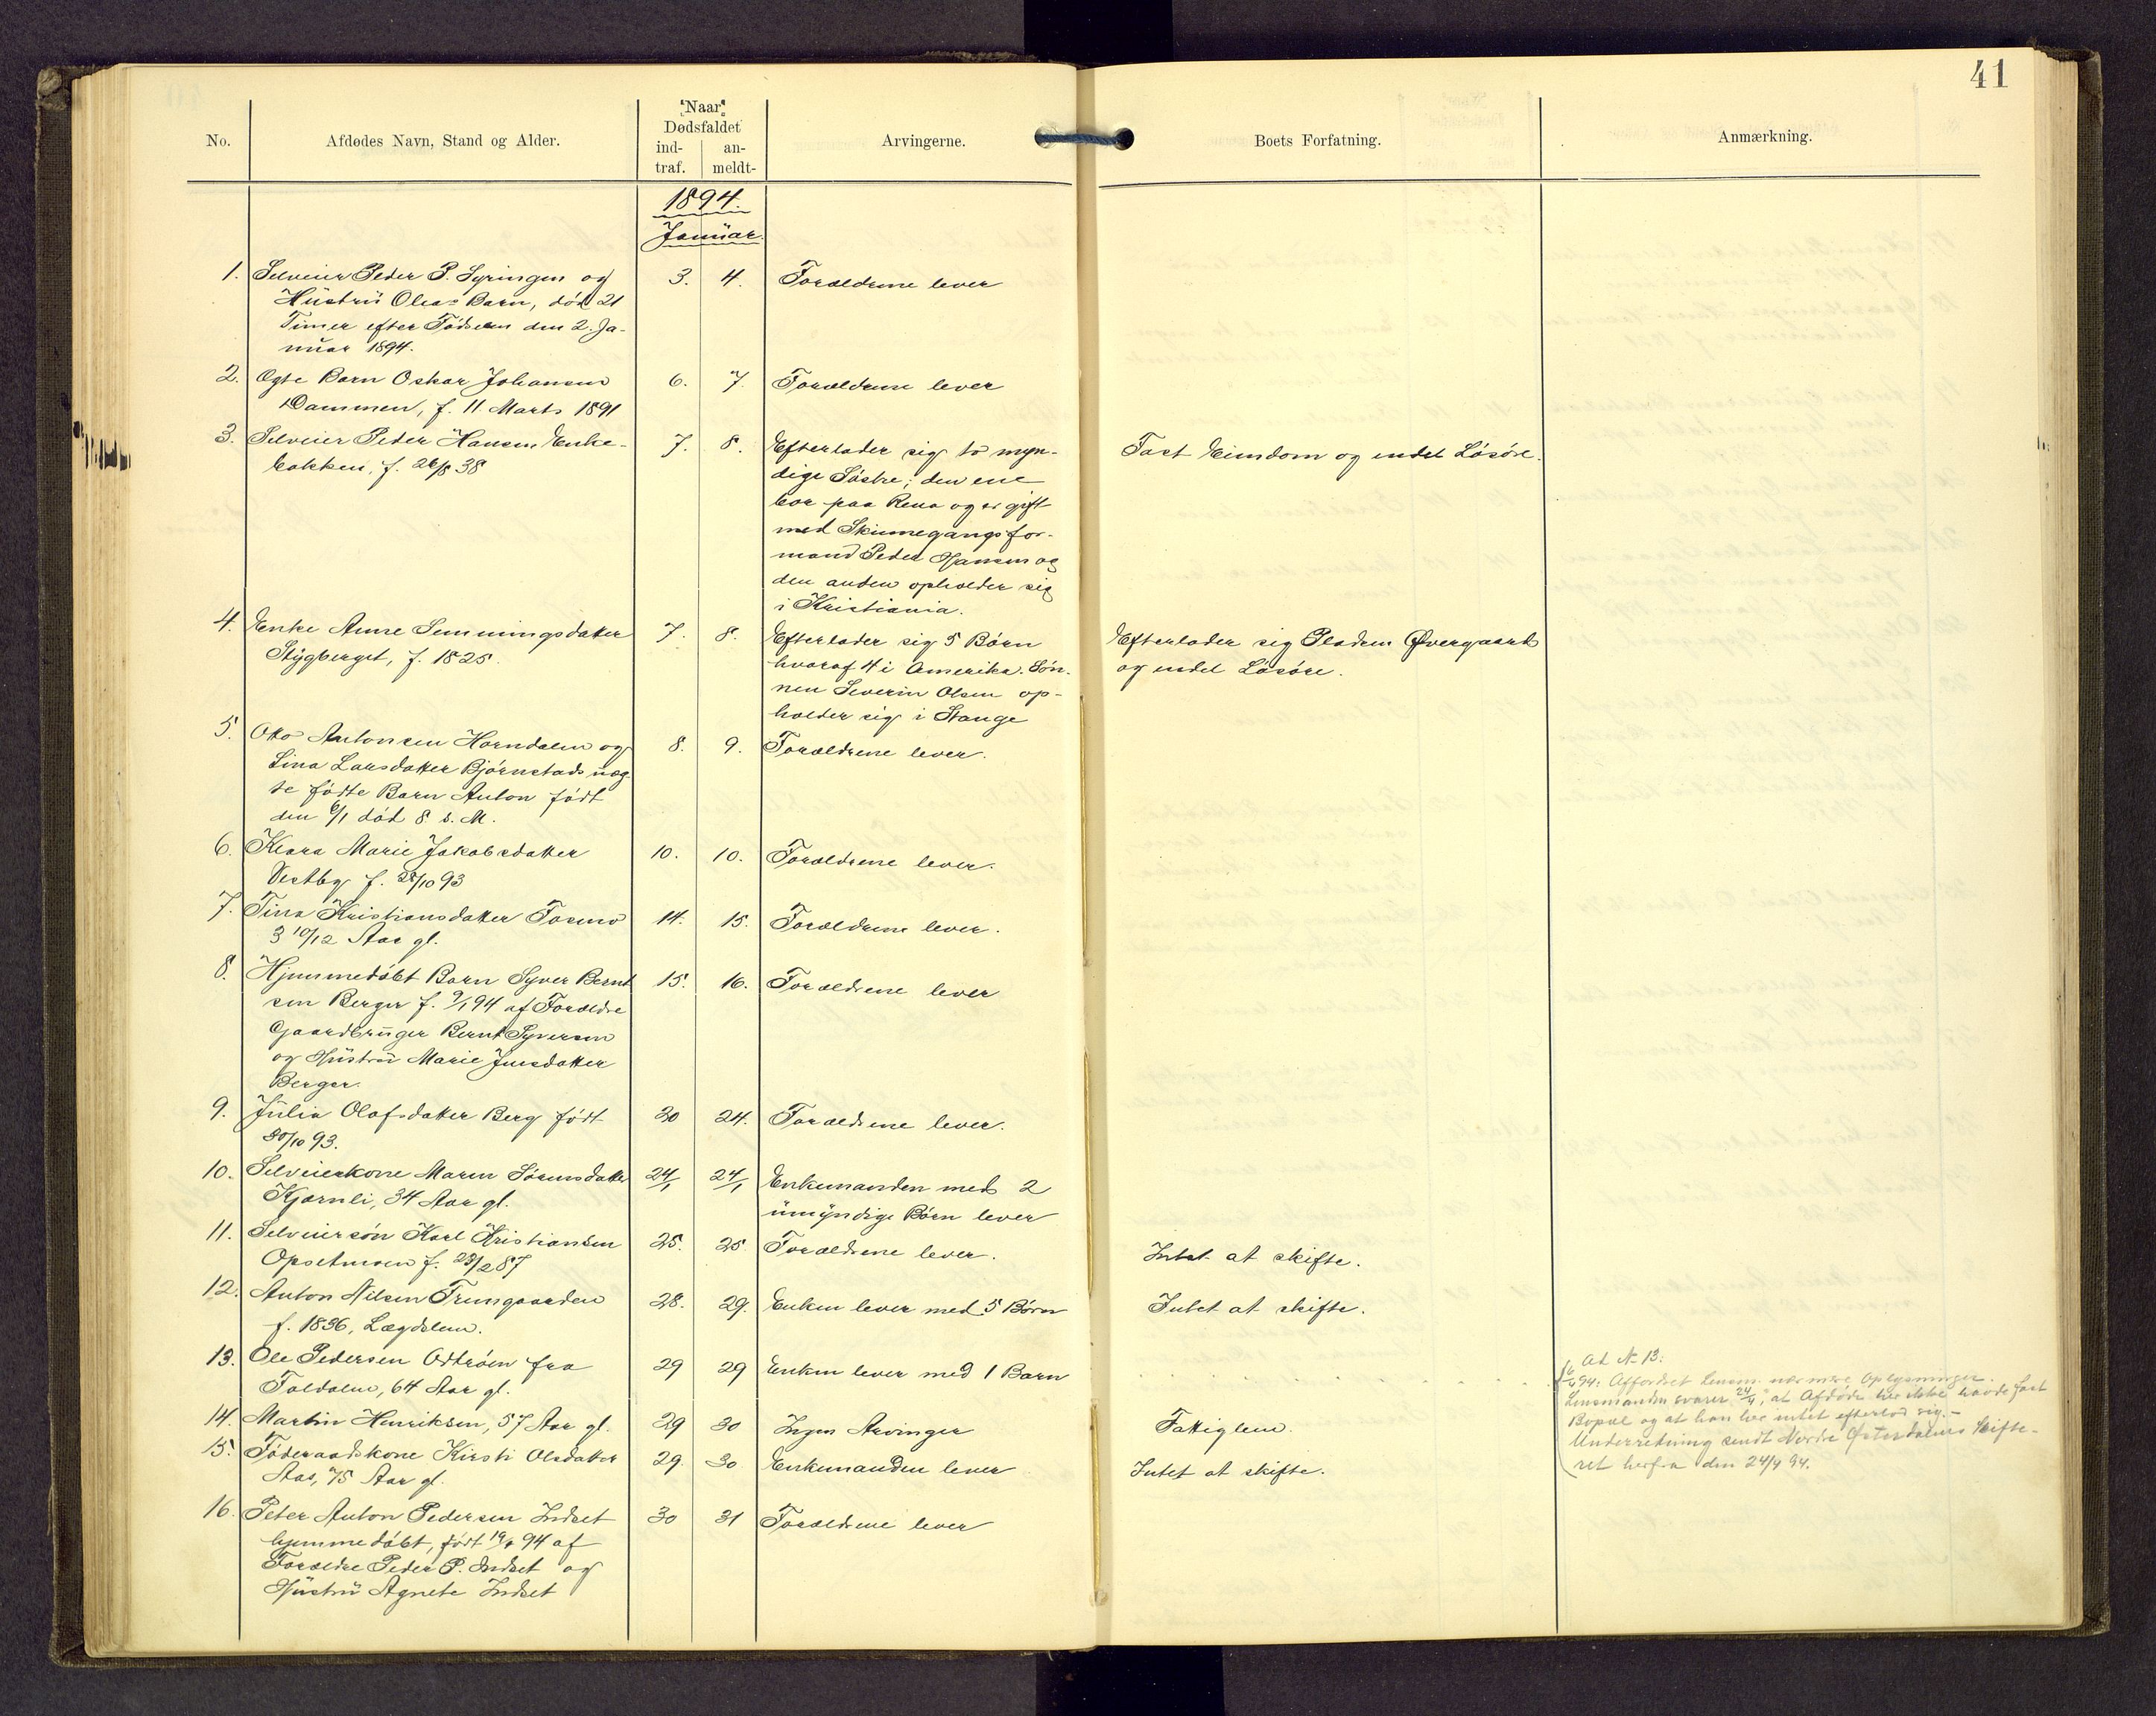 41
No.
Afdødes Navn, Stand og Alder.
"Naar"
Dødsfaldet
ind-
traf.
an-
meldt-
Arvingerne.
Boets Forfatning.
Anmærkning.
1894.
Januar.
1. Selveier Peder P. Syringen og 3. 4. Forældrene lever
Hustru Oleas Barn, død 21
Timer efter Fødselen den 2. Ja-
nuar 1894.
2. Ægte Barn Oskar Johansen 6. 7. Forældrene lever
Dammen, f. 11 Marts 1891
3. Selveier Peder Hansen Enke- 7. 8. Efterlader sig to myn- Fast Eiendom og endel Løsøre.
bakken, f. 26/8 38
dige Søstre; den ene
bor paa Rena og er gift
med Skinnegangsfor-
mand Peder Hansen og
den anden opholder sig
i Kristiania.
4. Enke Anne Semmingsdatter 7. 8. Efterlader sig 5 Børn Efterlader sig Pladsen Øvergaard
Stygberget, f. 1825. hvoraf 4 i Amerika. Søn- og endel Løsøre.
nen Severin Olsen op-
holder sig i Stange
5. Otto Antonsen Horndalen og 8. 9. Forældrene lever.
Lina Larsdatter Bjørnstads uæg-
te fødte Barn Anton født
den 6/1 død 8 s. M.
6. Klara Marie Jakobsdatter 10. 10. Forældrene lever.
Vestby f. 28/10 93
7. Tina Kristiansdatter Fosmo 14. 15. Forældrene lever.
3 10/12 Aar gl.
8. Hjemmedøbt Barn Syver Bernt 15. 16. Forældrene lever
sen Berger f. 9/1 94 af Forældre
Gaardbruger Bernt Syversen
og Hustru Marie Jensdatter
Berger.
9. Julia Olofsdatter Berg født 20 24. Forældrene lever.
30/10 93.
10. Selveierkone Maren Sørensdatter 24/1 24/1 Enkemanden med 2
Kjernli, 34 Aar gl. umyndige Børn lever
11. Selveiersøn Karl Kristiansen 25. 25 Forældrene lever. Intet at skifte.
Opsetmoen f. 23/2 87
12. Anton Nilsen Trungaarden 28. 29. Enken lever med 5 Børn Intet at skifte.
f. 1836, Lægdslem.
13. Ole Pedersen Odtrøen fra 29 29 Enken lever med 1 Barn
Foldalen, 64 Aar gl.
Ad No 13:
6/4 94: Affordret lensm. nærmere Oplysninger.
Lensmanden svarer 24/4, at Afdøde her ikke havde fast
Bopæl og at han her intet efterlod sig.-
Underretning sendt Nordre Østerdalens Skifte-
ret herfra den 24/4 94.
14. Martin Henriksen, 57 Aar gl. 29 30 Ingen Arvinger Fattiglem.
15. Føderaadskone Kirsti Olsdatter 29. 30 Enkemanden lever Intet at skifte.
Aas, 75 Aar gl.
16. Peter Anton Pedersen Indset 30 31 Forældrene lever
hjemmedøbt, født 19/1 94 af
Forældre Peder P. Indset og
Hustru Agnete Indset